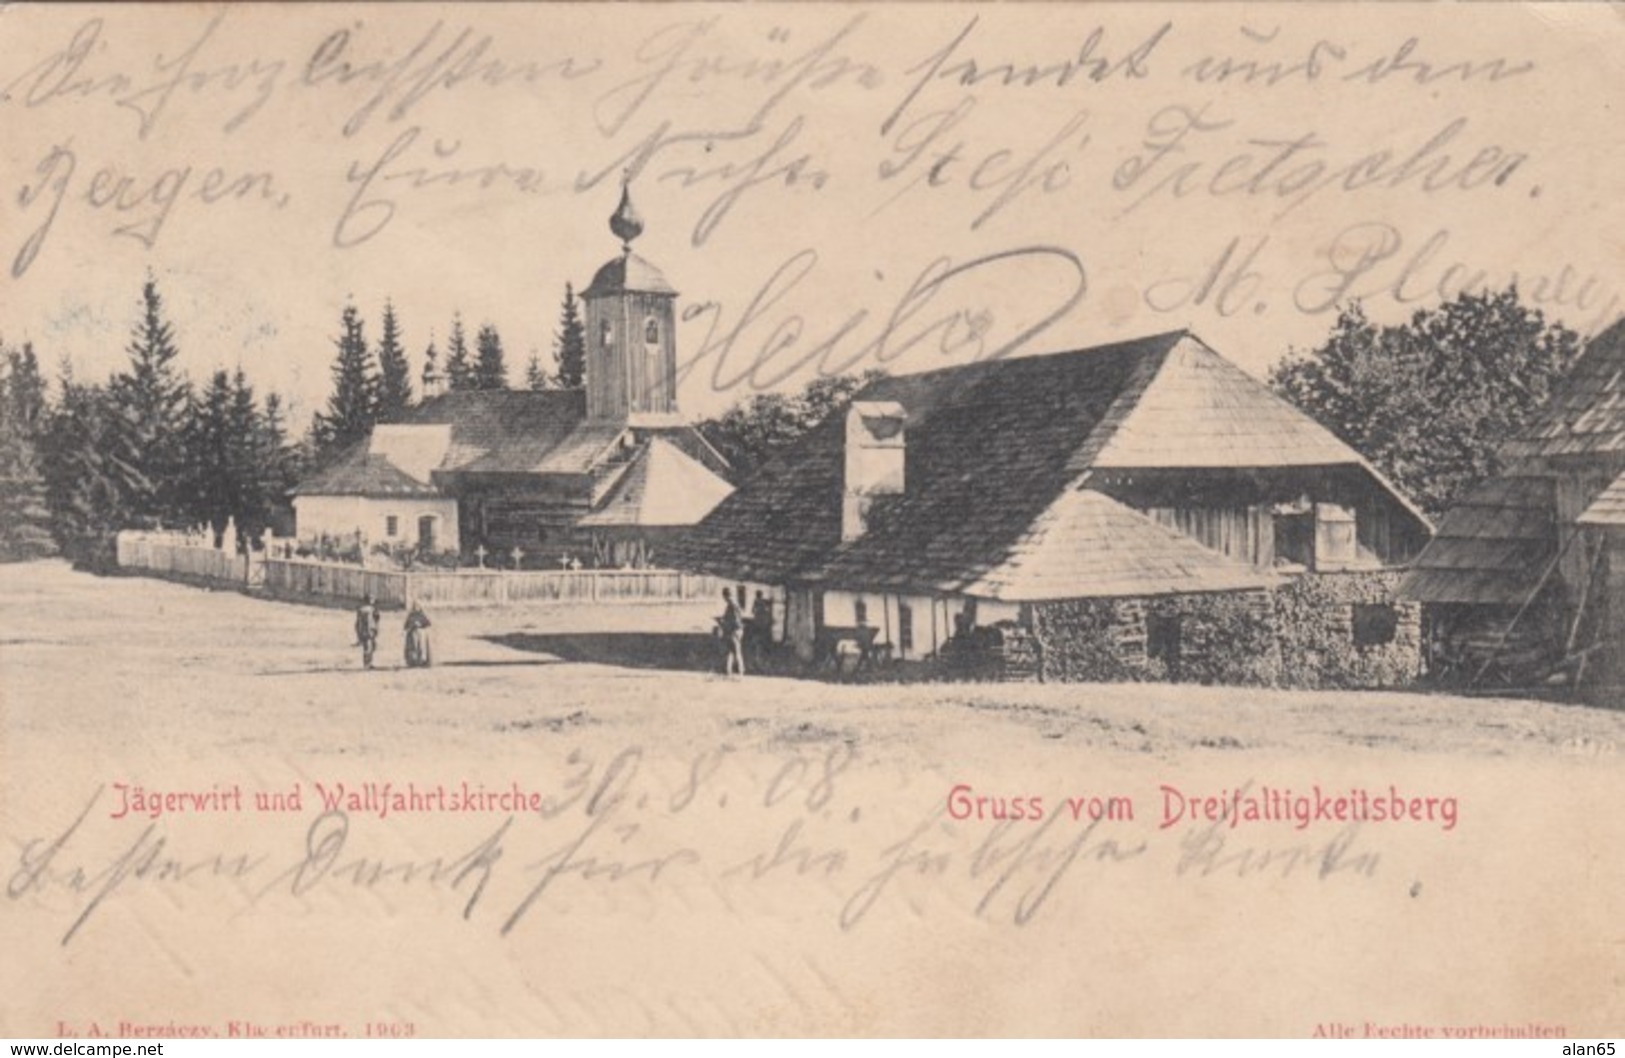 Die herzlichsten Grüße sendet uns den
Bergen. Eure Nichte Stesi Fretscher.
M.
Heil
30. 8. 08.
Jägerwirt und Wallfahrtskirche
Gruss vom Dreifaltigkeitsberg
Besten Dank für die hübsche Karte.
L. A. Berzáczy, Klagenfurt, 1903
Alle Rechte vorbehalten
www.delcampe.net
alan65